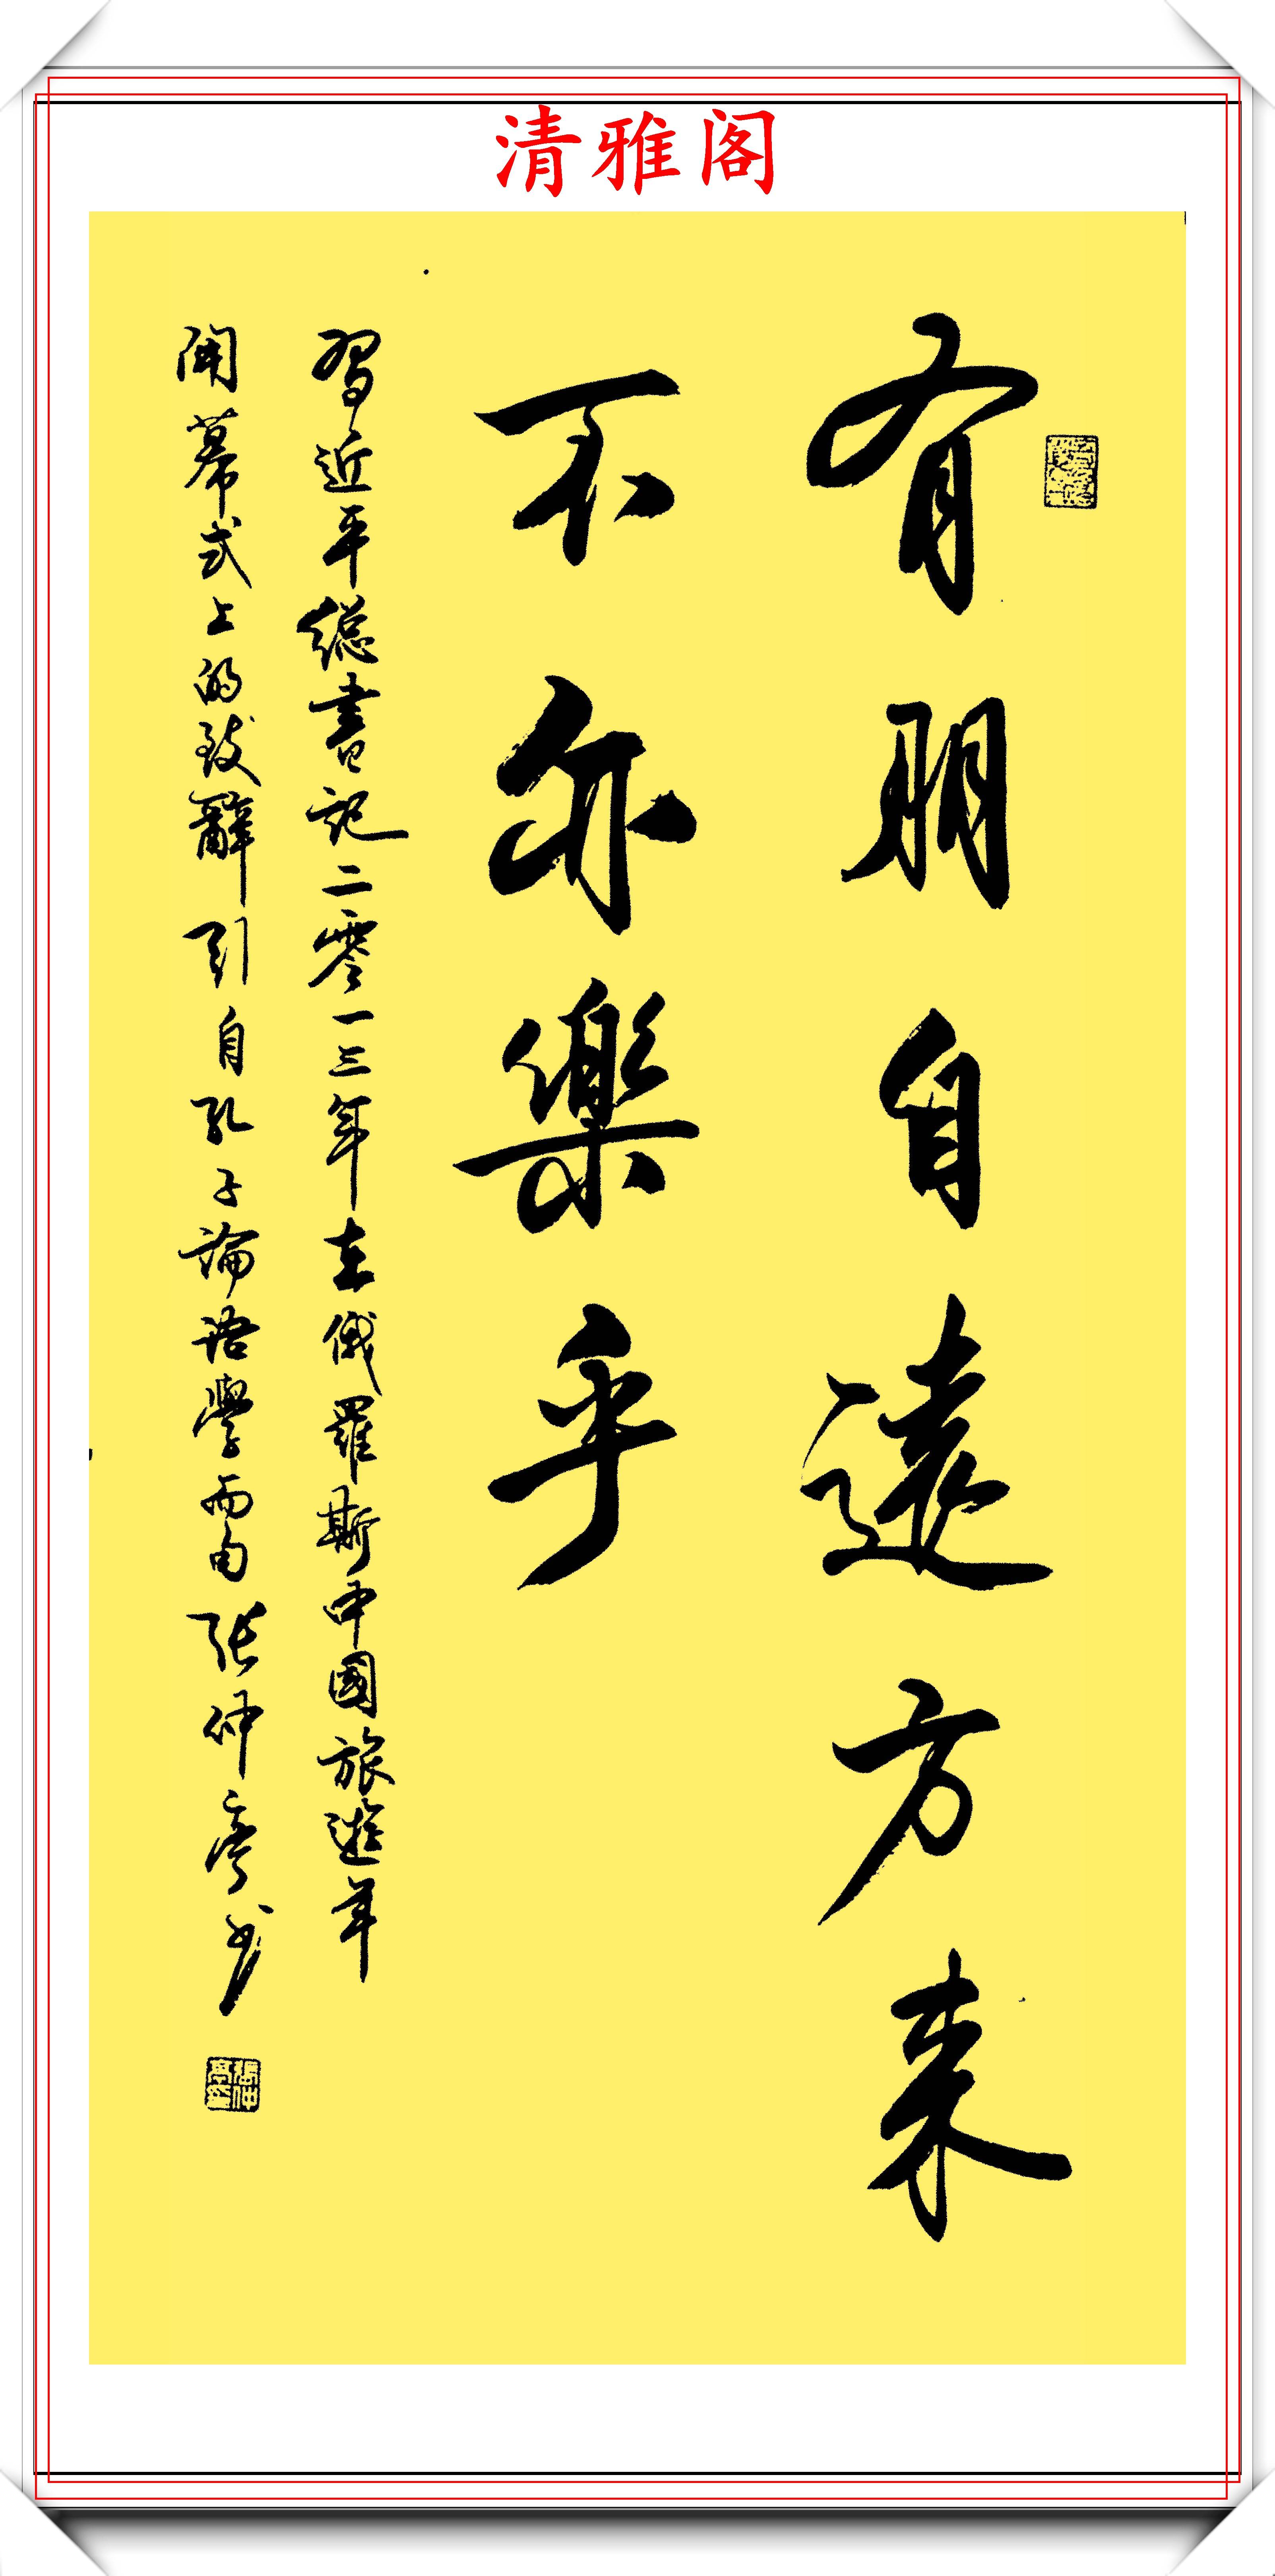 清雅阁
有朋自遠方来
不亦樂乎
習近平總書記二零一三年在俄羅斯中國旅遊年
開幕式上的致辭引自孔子論語學而句張仲亭书
張仲亭印